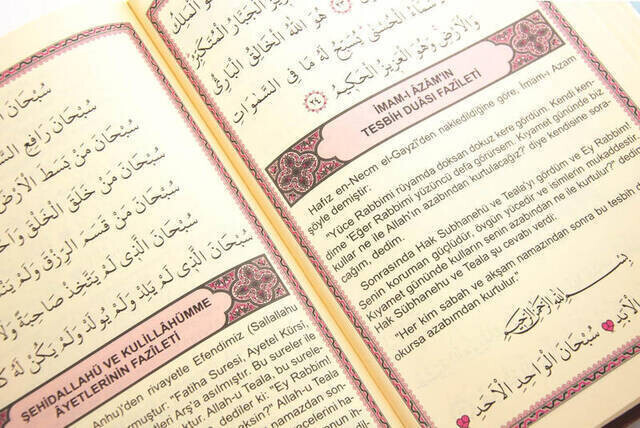 سُبْحَانَ
سُبْحَانَ رَافِعِ
سُبْحَانَ مَنْ بَسَطَ الْاَرْضَ
سُبْحَانَ مَنْ خَلَقَ الْخَلْقَ
سُبْحَانَ مَنْ قَسَمَ الرِّزْقَ وَلَمْ
سُبْحَانَ الَّذِي لَمْ يَتَّخِذْ صَاحِبَةً وَلَا
سُبْحَانَ الَّذِي لَمْ يَلِدْ وَلَمْ يُولَدْ وَلَمْ يَكُنْ لَهُ
ŞEHİDALLAHÜ VE KULİLLÂHÜMME
ÂYETLERİNİN FAZİLETİ
Anhu)'den rivayetle Efendimiz (Sallallahu
"Fatiha Suresi, Ayetel Kürsi,
Arş'a asılmıştır. Bu sureler ile
Allah-u Teala, bu surele-
dediler ki: "Ey Rabbimi
Allah-u Teala
namazdan son-
الْمَلِكُ
الْجَبَّارُ الْمُتَكَبِّرُ
هُوَ اللّٰهُ الْخَالِقُ الْبَارِئُ
الْحُسْنٰى يُسَبِّحُ لَهُ مَا فِي السَّمٰوَاتِ
وَالْاَرْضِ وَهُوَ الْعَزِيزُ الْحَكِيمُ ٢٤
İMAM-I ÂZÂM'IN
TESBİH DUÂSI FAZİLETİ
Hafız en-Necm el-Gayzî'den nakledildiğine göre, İmam-ı Azam
şöyle demiştir:
"Yüce Rabbimi rüyamda doksan dokuz kere gördüm. Kendi ken-
dime 'Eğer Rabbimi yüzüncü defa görürsem. Kıyamet gününde biz
kullar ne ile Allah'ın azabından kurtulacağız?' diye kendisine sora-
cağım, dedim.
Sonrasında Hak Subhanehü ve Teala'yı gördüm ve Ey Rabbi
Senin koruman güçlüdür, övgün yücedir ve isimlerin mukaddesti
Kıyamet gününde kulların senin azabından ne ile kurtulur?' dedi
Hak Sübhanehu ve Teala şu cevabı verdi:
"Her kim sabah ve akşam namazından sonra bu tesbih
okursa azabımdan kurtulur."
بِسْمِ اللّٰهِ الرَّحْمٰنِ الرَّحِيمِ
سُبْحَانَ الْوَاحِدِ الْاَحَدِ